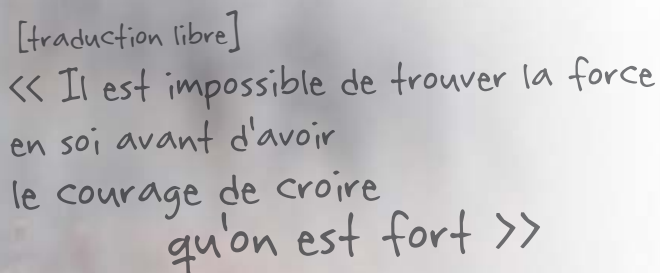 [traduction libre]
<< Il est impossible de trouver la force
en soi avant d'avoir
le courage de croire
qu'on est fort >>